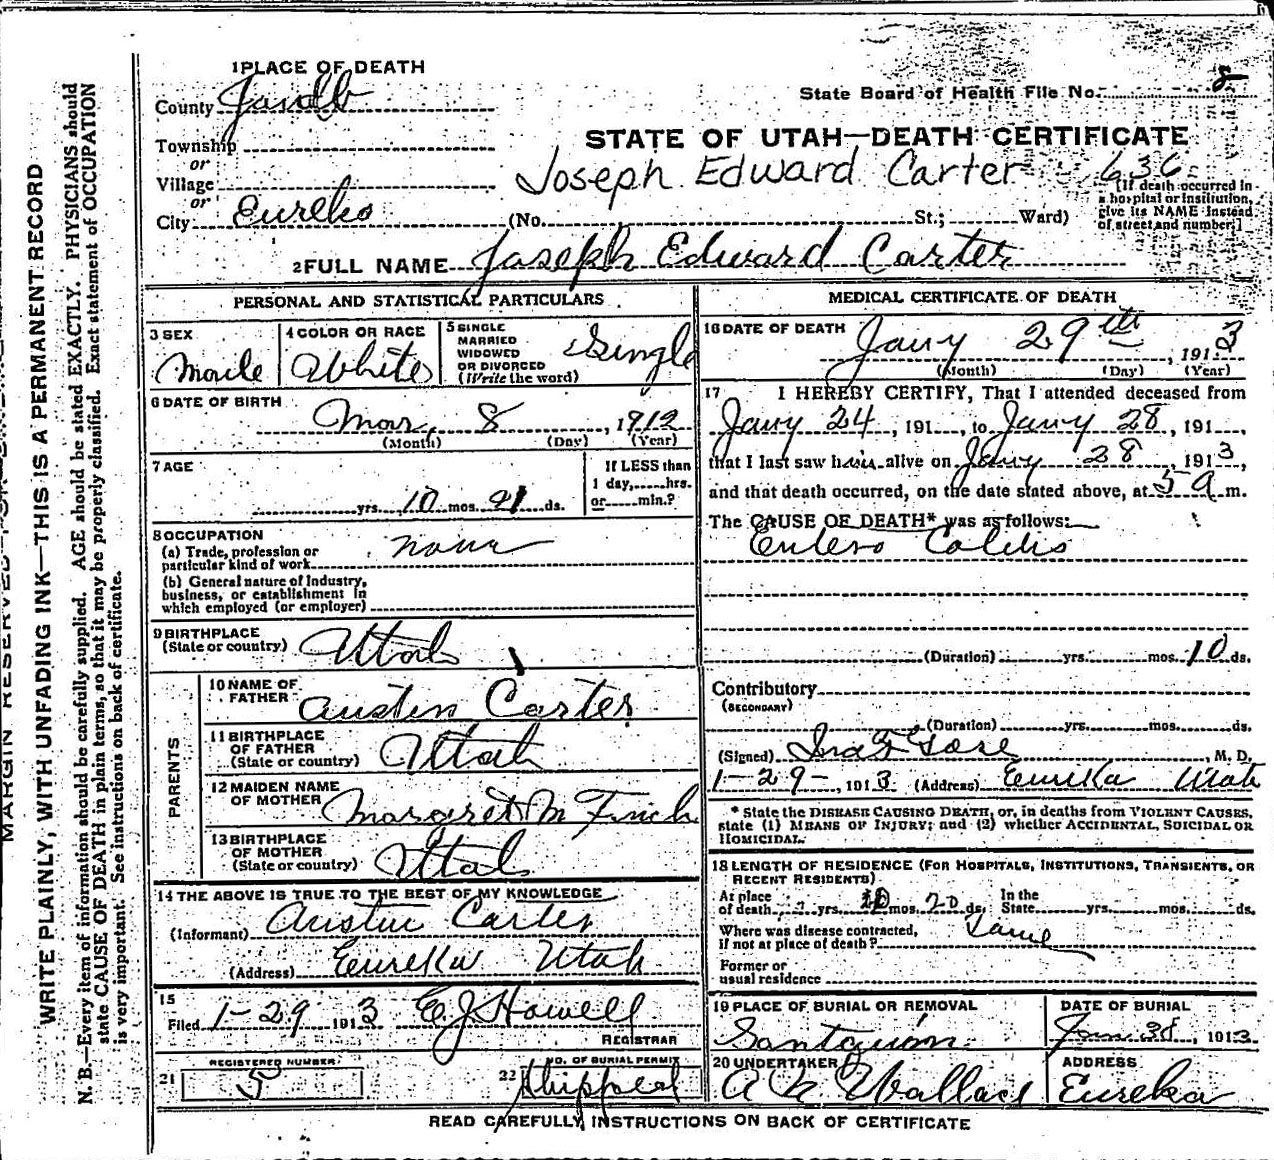 1 PLACE OF DEATH
County Jauab
State Board of Health File No. 8
Township
or
Village
or
City Eureka
STATE OF UTAH—DEATH CERTIFICATE
Joseph Edward Carter 636
(No. St.; Ward)
[If death occurred in
a hospital or institution,
give its NAME instead
of street and number.]
2 FULL NAME Joseph Edward Carter
PERSONAL AND STATISTICAL PARTICULARS
3 SEX
Male
4 COLOR OR RACE
White
5 SINGLE
MARRIED
WIDOWED
OR DIVORCED
(Write the word)
Single
6 DATE OF BIRTH
Mar 8, 1912
(Month) (Day) (Year)
7 AGE
yrs. 10 mos. 21 ds.
If LESS than
1 day, hrs.
or min.?
8 OCCUPATION
(a) Trade, profession or
particular kind of work none
(b) General nature of industry,
business, or establishment in
which employed (or employer)
9 BIRTHPLACE
(State or country) Utah
PARENTS
10 NAME OF
FATHER Austin Carter
11 BIRTHPLACE
OF FATHER
(State or country) Utah
12 MAIDEN NAME
OF MOTHER Margaret M Finch
13 BIRTHPLACE
OF MOTHER
(State or country) Utah
14 THE ABOVE IS TRUE TO THE BEST OF MY KNOWLEDGE
(Informant) Austin Carter
(Address) Eureka Utah
15
Filed 1-29 1913 E. J. Howell
REGISTRAR
REGISTERED NUMBER
21 5
NO. OF BURIAL PERMIT
22 Shipped
MEDICAL CERTIFICATE OF DEATH
16 DATE OF DEATH Jany 29th, 1913
(Month) (Day) (Year)
17 I HEREBY CERTIFY, That I attended deceased from
Jany 24, 191 , to Jany 28, 191 ,
that I last saw him alive on Jany 28, 1913,
and that death occurred, on the date stated above, at 5 a m.
The CAUSE OF DEATH* was as follows:
Entero Colitis
(Duration) yrs. mos. 10 ds.
Contributory
(SECONDARY)
(Duration) yrs. mos. ds.
(Signed) Ina F, M. D.
1-29-, 1913 (Address) Eureka Utah
* State the DISEASE CAUSING DEATH, or, in deaths from VIOLENT CAUSES,
state (1) MEANS OF INJURY; and (2) whether ACCIDENTAL, SUICIDAL OR
HOMICIDAL.
18 LENGTH OF RESIDENCE (FOR HOSPITALS, INSTITUTIONS, TRANSIENTS, OR
RECENT RESIDENTS)
At place
of death, yrs. 10 mos. 20 ds. In the
State yrs. mos. ds.
Where was disease contracted,
if not at place of death? Same
Former or
usual residence
19 PLACE OF BURIAL OR REMOVAL
Santaquin
DATE OF BURIAL
Jan 31, 1913
20 UNDERTAKER
A N Wallace
ADDRESS
Eureka
READ CAREFULLY, INSTRUCTIONS ON BACK OF CERTIFICATE
MARGIN RESERVED FOR
WRITE PLAINLY, WITH UNFADING INK—THIS IS A PERMANENT RECORD
N. B.—Every item of information should be carefully supplied. AGE should be stated EXACTLY. PHYSICIANS should
state CAUSE OF DEATH in plain terms, so that it may be properly classified. Exact statement of OCCUPATION
is very important. See instructions on back of certificate.